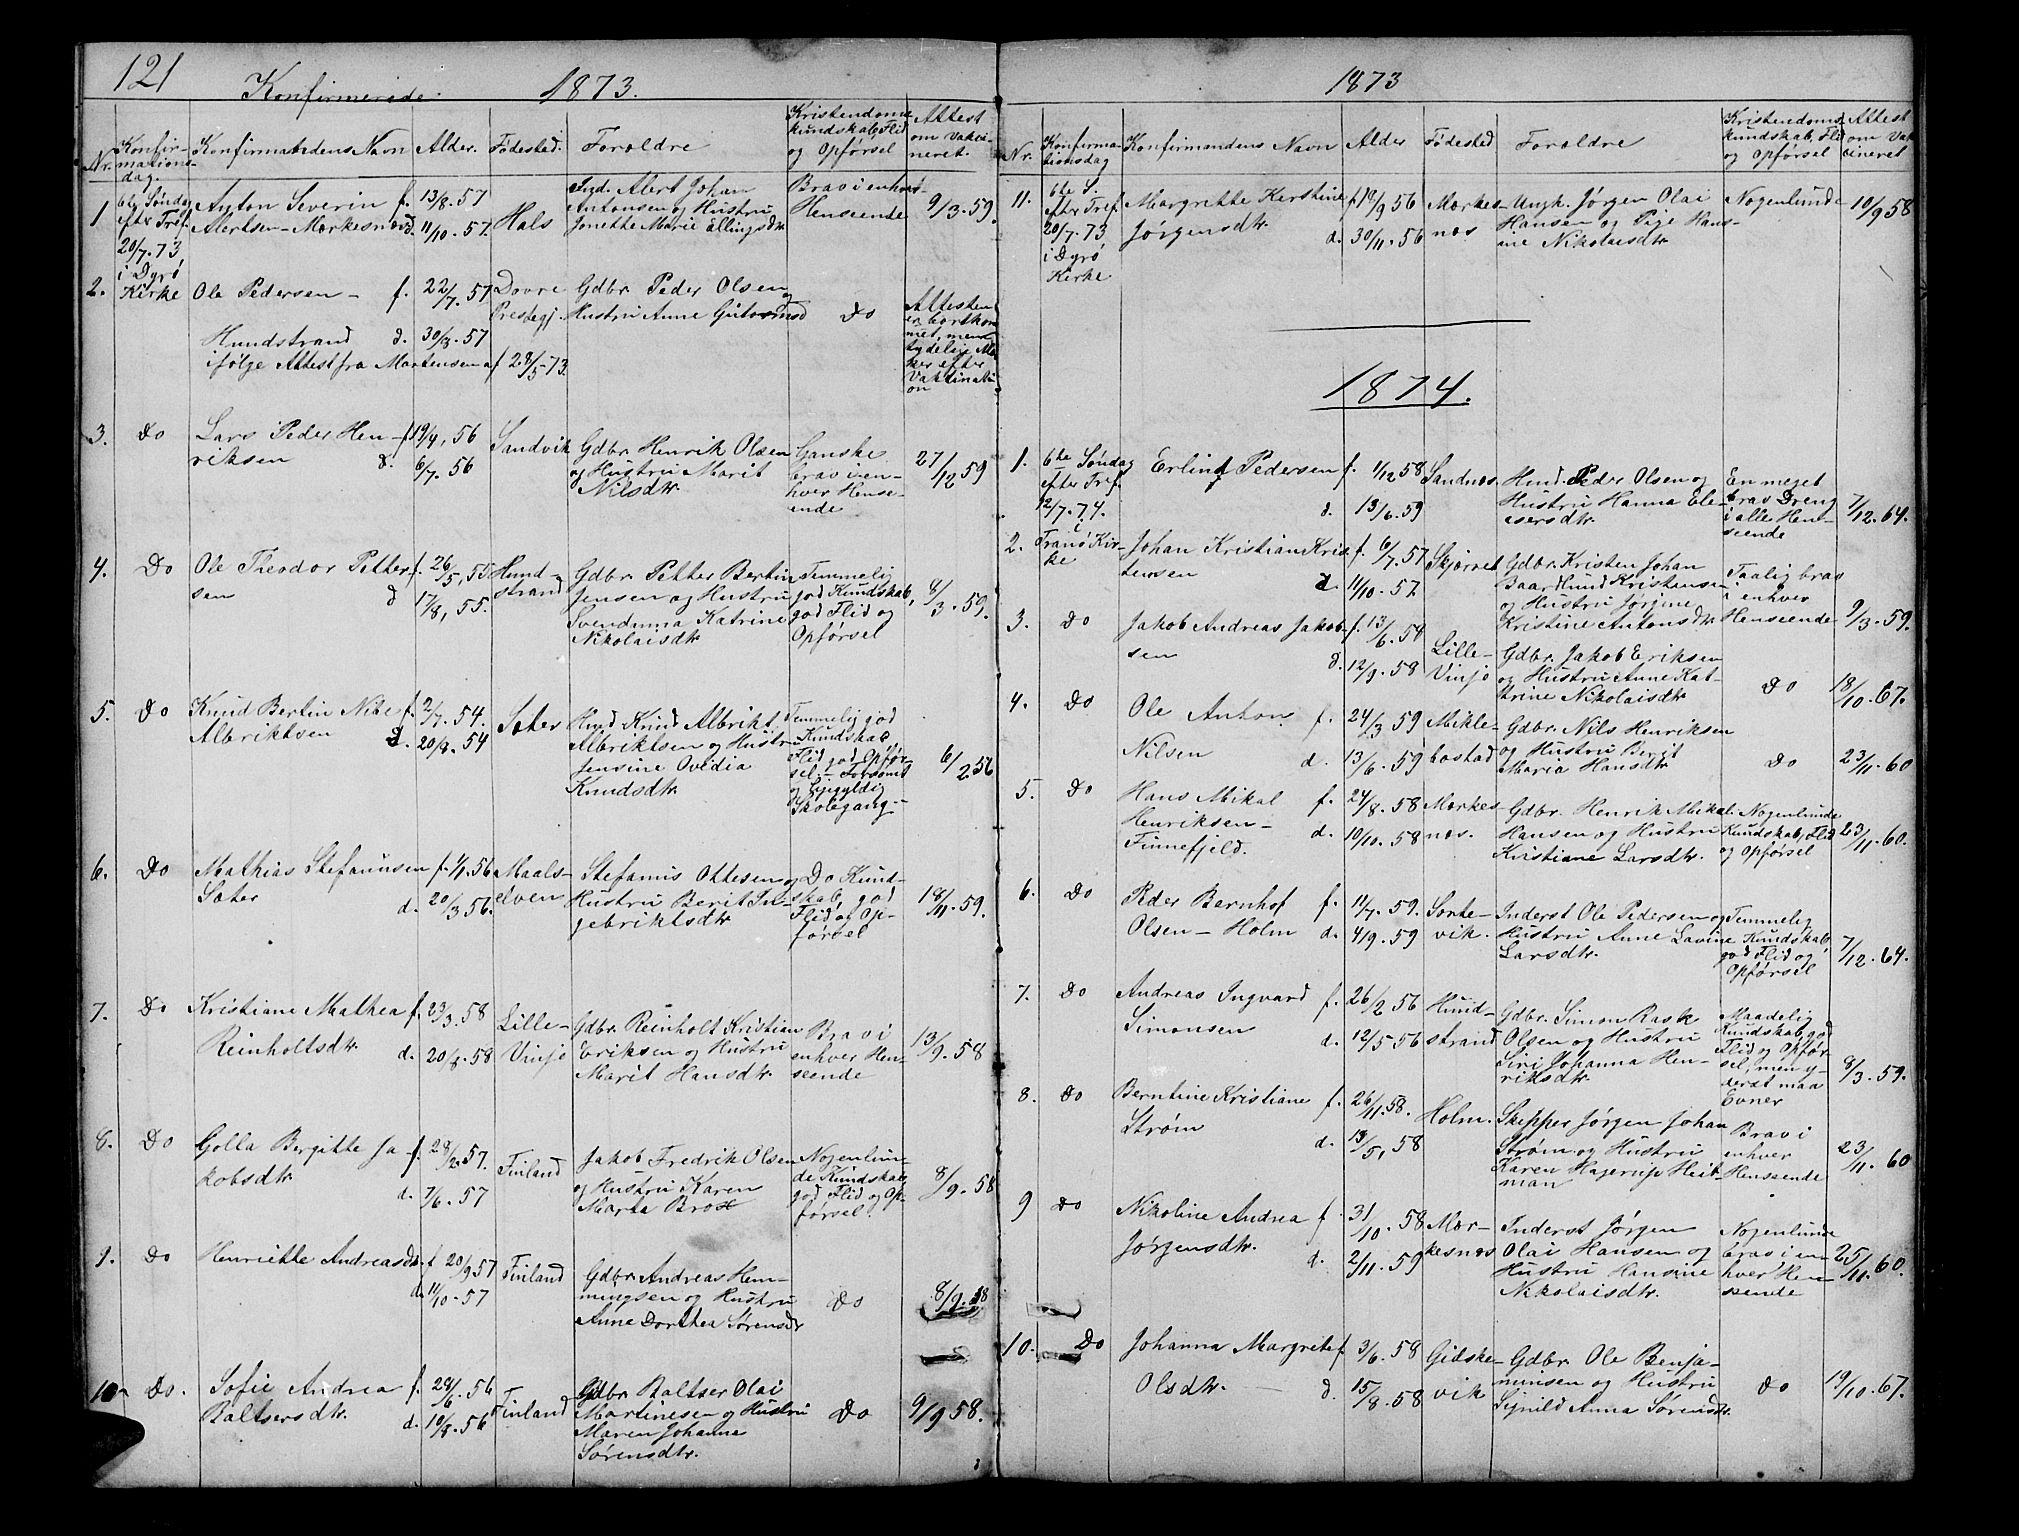 121
Konfirmerede.
1873.
Nr.
Konfir-
mations-
dag.
Konfirmandens Navn
Alder.
Födested.
Foroldre
Kristendoms
kundskab, Flid
og Opførsel
Attest
om Vakci-
neret.
1
6te Søndag
efter Tref.
20/7.73,
i Dyrö
Kirke
Anton Severin f. 13/8.57
Alertsen-Mærkesnæs d. 11/10.57.
Hals
Ind. Alert Johan
Antonsen og Hustru
Jonette Marie Ellingsdtr
Brav i enhver
Henseende
9/3.59.
2.
Ole Pedersen - f. 22/7.57
Hundstrand d. 30/8.57
ifølge Attest fra Mortensen af 28/5-73.
Dovre
Prestegj.
Gdbr. Peder Olsen og
Hustru Anne Gutormsd
Do
Attesten
er bortkom
met, men
tydelige Mæ
ker efter
Vaktinati
on
3.
Do
Lars Peder Hen- f. 19/4, 56
riksen d. 6/7.56
Sandvik
Gdbr. Henrik Olsen
og Hustru Marit
Nilsdtr.
Ganske
brav i en-
hver Hense-
ende
27/12 59
4.
Do
Ole Theodor Petter- f. 26/5, 55
sen d 17/8, 55.
Hund-
strand
Gdbr. Petter Bertin
Jensen og Hustru
Svendinna Katrine
Nikolaisdtr
Temmelig
god Kundskab,
god Flid og
Opførsel
8/3.59.
5.
Do
Knud Bertin Nibe f. 2/7.54.
Albriktsen d. 20/8.54
Sæter
Hmd Knud Albrikt
Albriktsen og Hustru
Jensine Ovidia
Knudsdtr.
Temmelig god
Kundskab,
Flid god Opfør-
sel. - Forsømt
og ligegyldig
Skolegang.-
6/2 56
6.
Do
Mathias Stefanusen f. 1/1.56
Sæter d. 20/3 56.
Maals-
elven
Stefanus Ottesen og
Hustru Berit In-
gebriktsdtr
Do Kund-
skab, god
Flid og Op-
førsel
18/11.59.
7.
Do
Kristiane Mathea f. 23/3.58
Reinholtsdtr. d. 20/8.58
Lille-
Vinje
Gdbr. Reinholt Kristian
Eriksen og Hustru
Marit Hansdtr.
Brav i
enhver Hen-
seende
13/9.58
8.
Do
Golla Bergitte Ja- f. 28/2.57.
kobsdtr. d. 7/6.57
Finland
Jakob Fredrik Olsen
og Hustru Karen
Marta Brox
Nogenlun-
de Kundskab,
god Flid og Op-
førsel.
8/9.58
9.
Do
Henriette Andreasdtr. f 20/9 57
d. 11/10.57
Finland
Gdbr. Andreas Hem-
mingsen og Hustru
Anne Dorthea Sørensdtr
Do
8/9.58
10
Do.
Sofie Andrea f. 28/6.56
Baltsersdtr. d. 10/8.56
Finland
Gdbr. Baltser Olai
Martinesen og Hustru
Maren Johanna
Sørensdtr.
Do
9/9 58.
1873
Nr.
Konfirma-
tionsdag
Konfirmandens Navn
Alder
Födested
Foroldre
Kristendoms
kundskab, Flid
og Opførsel
Attest
om Vak
cineret
11.
6te S.
efter Tref.
20/7.73
i Dyrö
Kirke
Margrethe Kerstine f. 10/9 56
Jørgensdtr. d. 30/11.56
Mærkes-
næs
Ungk. Jørgen Olai
Hansen og Pige Hans-
ine Nikolaisdtr.
Nogenlunde
10/9 58
1874.
1.
6te Søndag
efter Tref.
12/7.74.
i
Tranö Kir-
ke
Erling Pedersen f. 1/12 58
d. 13/6.59
Sandnæs.
Hmd. Peder Olsen og
Hustru Hanna Ele-
asersdtr.
En meget
brav Dreng
i alle Hen-
seende
7/12.64.
2.
Johan Kristian Kris f. 6/7.57
tensen d. 11/10.57
Skjærvet
Gdbr. Kristen Johan
Baarhund Kristense
og Hustru Jørgine
Kristine Antonsdtr
Taalig brav
i enhver
Henseende
9/3.59.
3.
Do
Jakob Andreas Jakob- f. 13/6.58
sen d. 12/9.58
Lille-
Vinje
Gdbr. Jakob Eriksen
og Hustru Anne Kat-
trine Nikolaisdtr
Do
18/10.67.
4.
Do
Ole Anton f. 24/3 59
Nilsen d. 13/6.59
Mikle-
bostad
Gdbr. Nils Henriksen
og Hustru Berit
Maria Hansdtr.
Do
23/11.60
5.
Do
Hans Mikal f. 24/8.58
Henriksen- d. 10/10.58
Finnefjeld.
Mærkes-
næs.
Gdbr. Henrik Mikal
Hansen og Hustru
Kristiane Larsdtr.
Nogenlunde
Kundskab, Flid
og Opførsel
23/11.60.
6.
Do
Peder Bernhof f. 11/7.59.
Olsen - Holm d. 4/9.59
Sorte-
vik.
Inderst Ole Pedersen og
Hustru Anne Lavine
Larsdtr.
Temmelig
Kundskab,
god Flid og
Opførsel
7/12.64.
7.
Do
Andreas Ingvard f. 26/2 56
Simonsen d. 12/5 56
Hund-
strand
Gdbr. Simon Rask
Olsen og Hustru
Siri Johanna Hen-
riksdtr.
Maadelig
Kundskab, god
Flid og Opfør-
sel, men y-
derst smaa
Evner
8/3.59.
8.
Do
Berntine Kristiane f. 26/11.58.
Strøm d. 13/5, 58
Holm.
Skipper Jørgen Johan
Strøm og Hustru
Karen Hagerup Heit-
man
Brav i
enhver
Henseende
23/11.60
9
Do
Nikoline Andrea f. 31/10.58
Jørgensdtr. d. 2/11.59
Mær-
kesnæs
Inderst Jørgen
Olai Hansen og
Hustru Hansine
Nikolaisdtr.
Nogenlunde
brav i en-
hver Hen-
seende
25/11.60.
10.
Do
Johanna Margrete f. 3/6.58
Olsdtr. - d. 15/8.58
Gidske-
vik
Gdbr. Ole Benja-
minsen og Hustru
Signild Anna Sørensdtr.
Do
19/10.67.